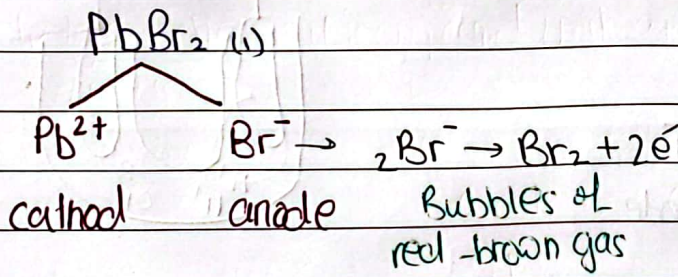 PbBr₂ (l)
Pb²⁺ Br⁻ → ₂Br⁻ → Br₂ + 2e⁻
cathod anode Bubbles of
red-brown gas